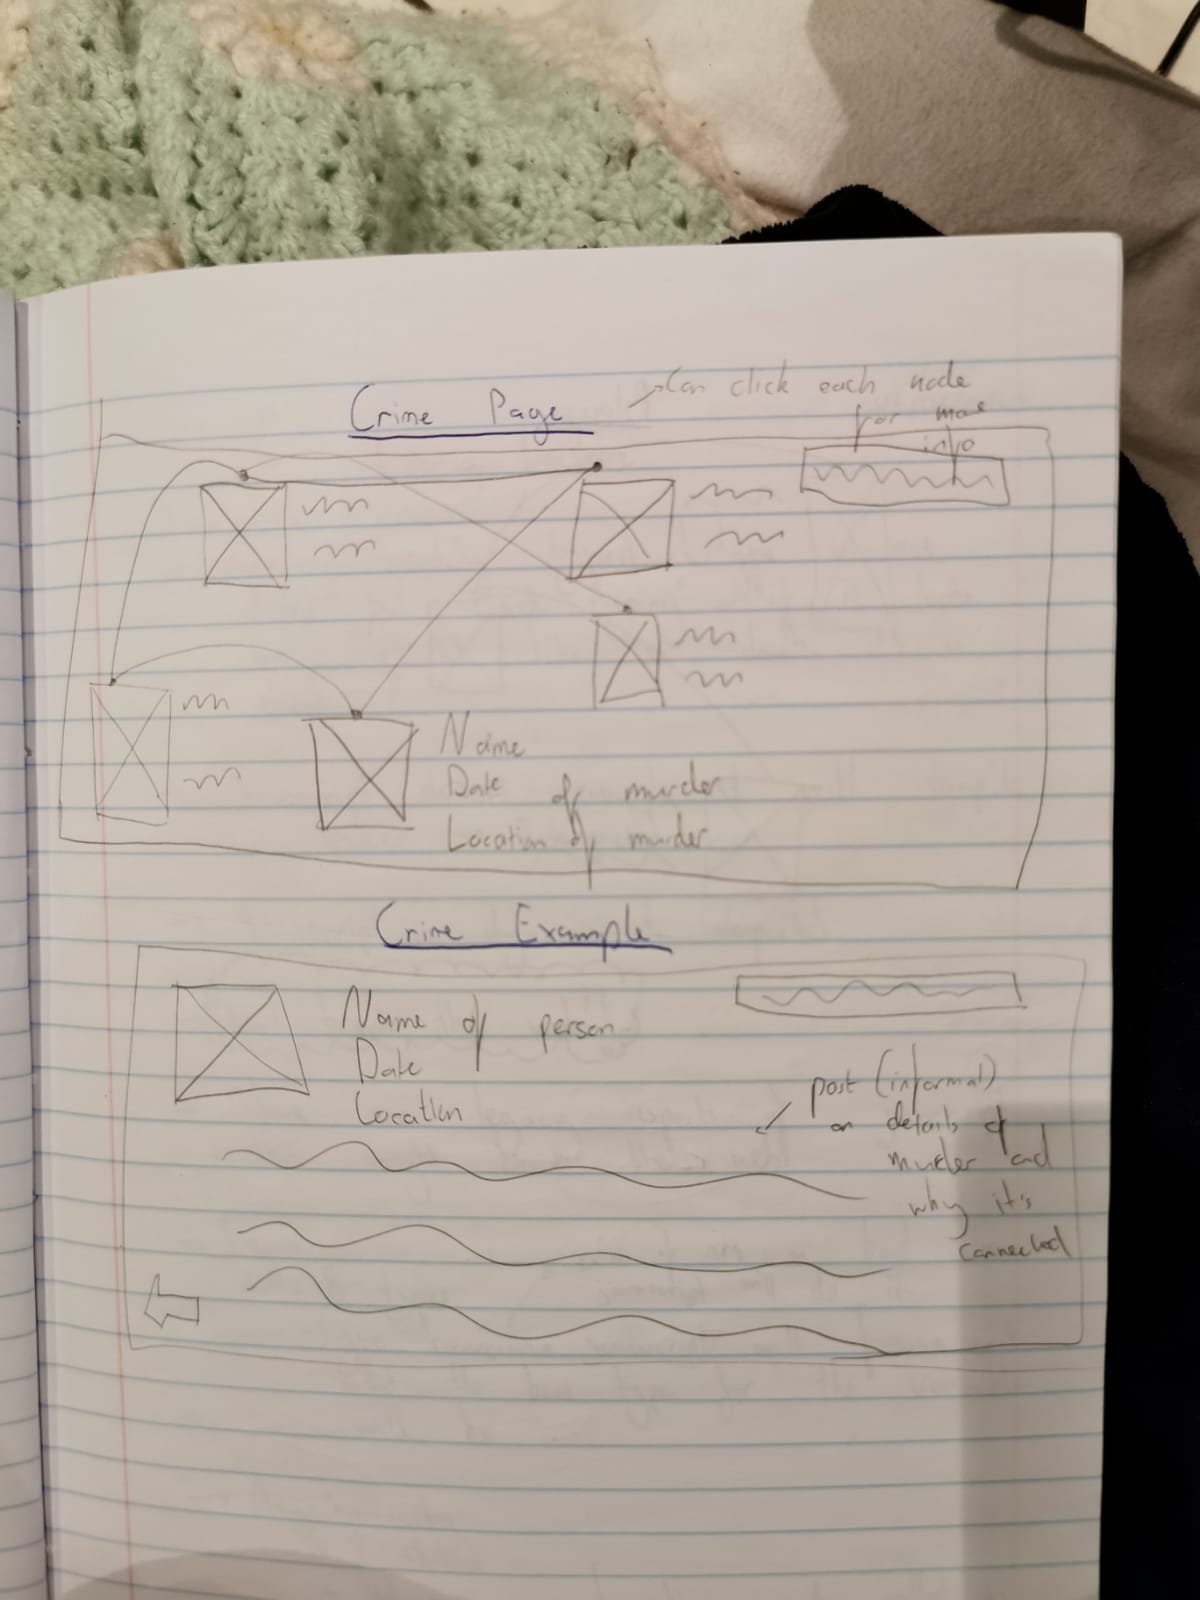 Crime Page
Can click each node
for more
info
Name
Date of murder
Location of murder
Crime Example
Name of person
Date
Location
post (informal)
on details of
murder and
why it's
connected